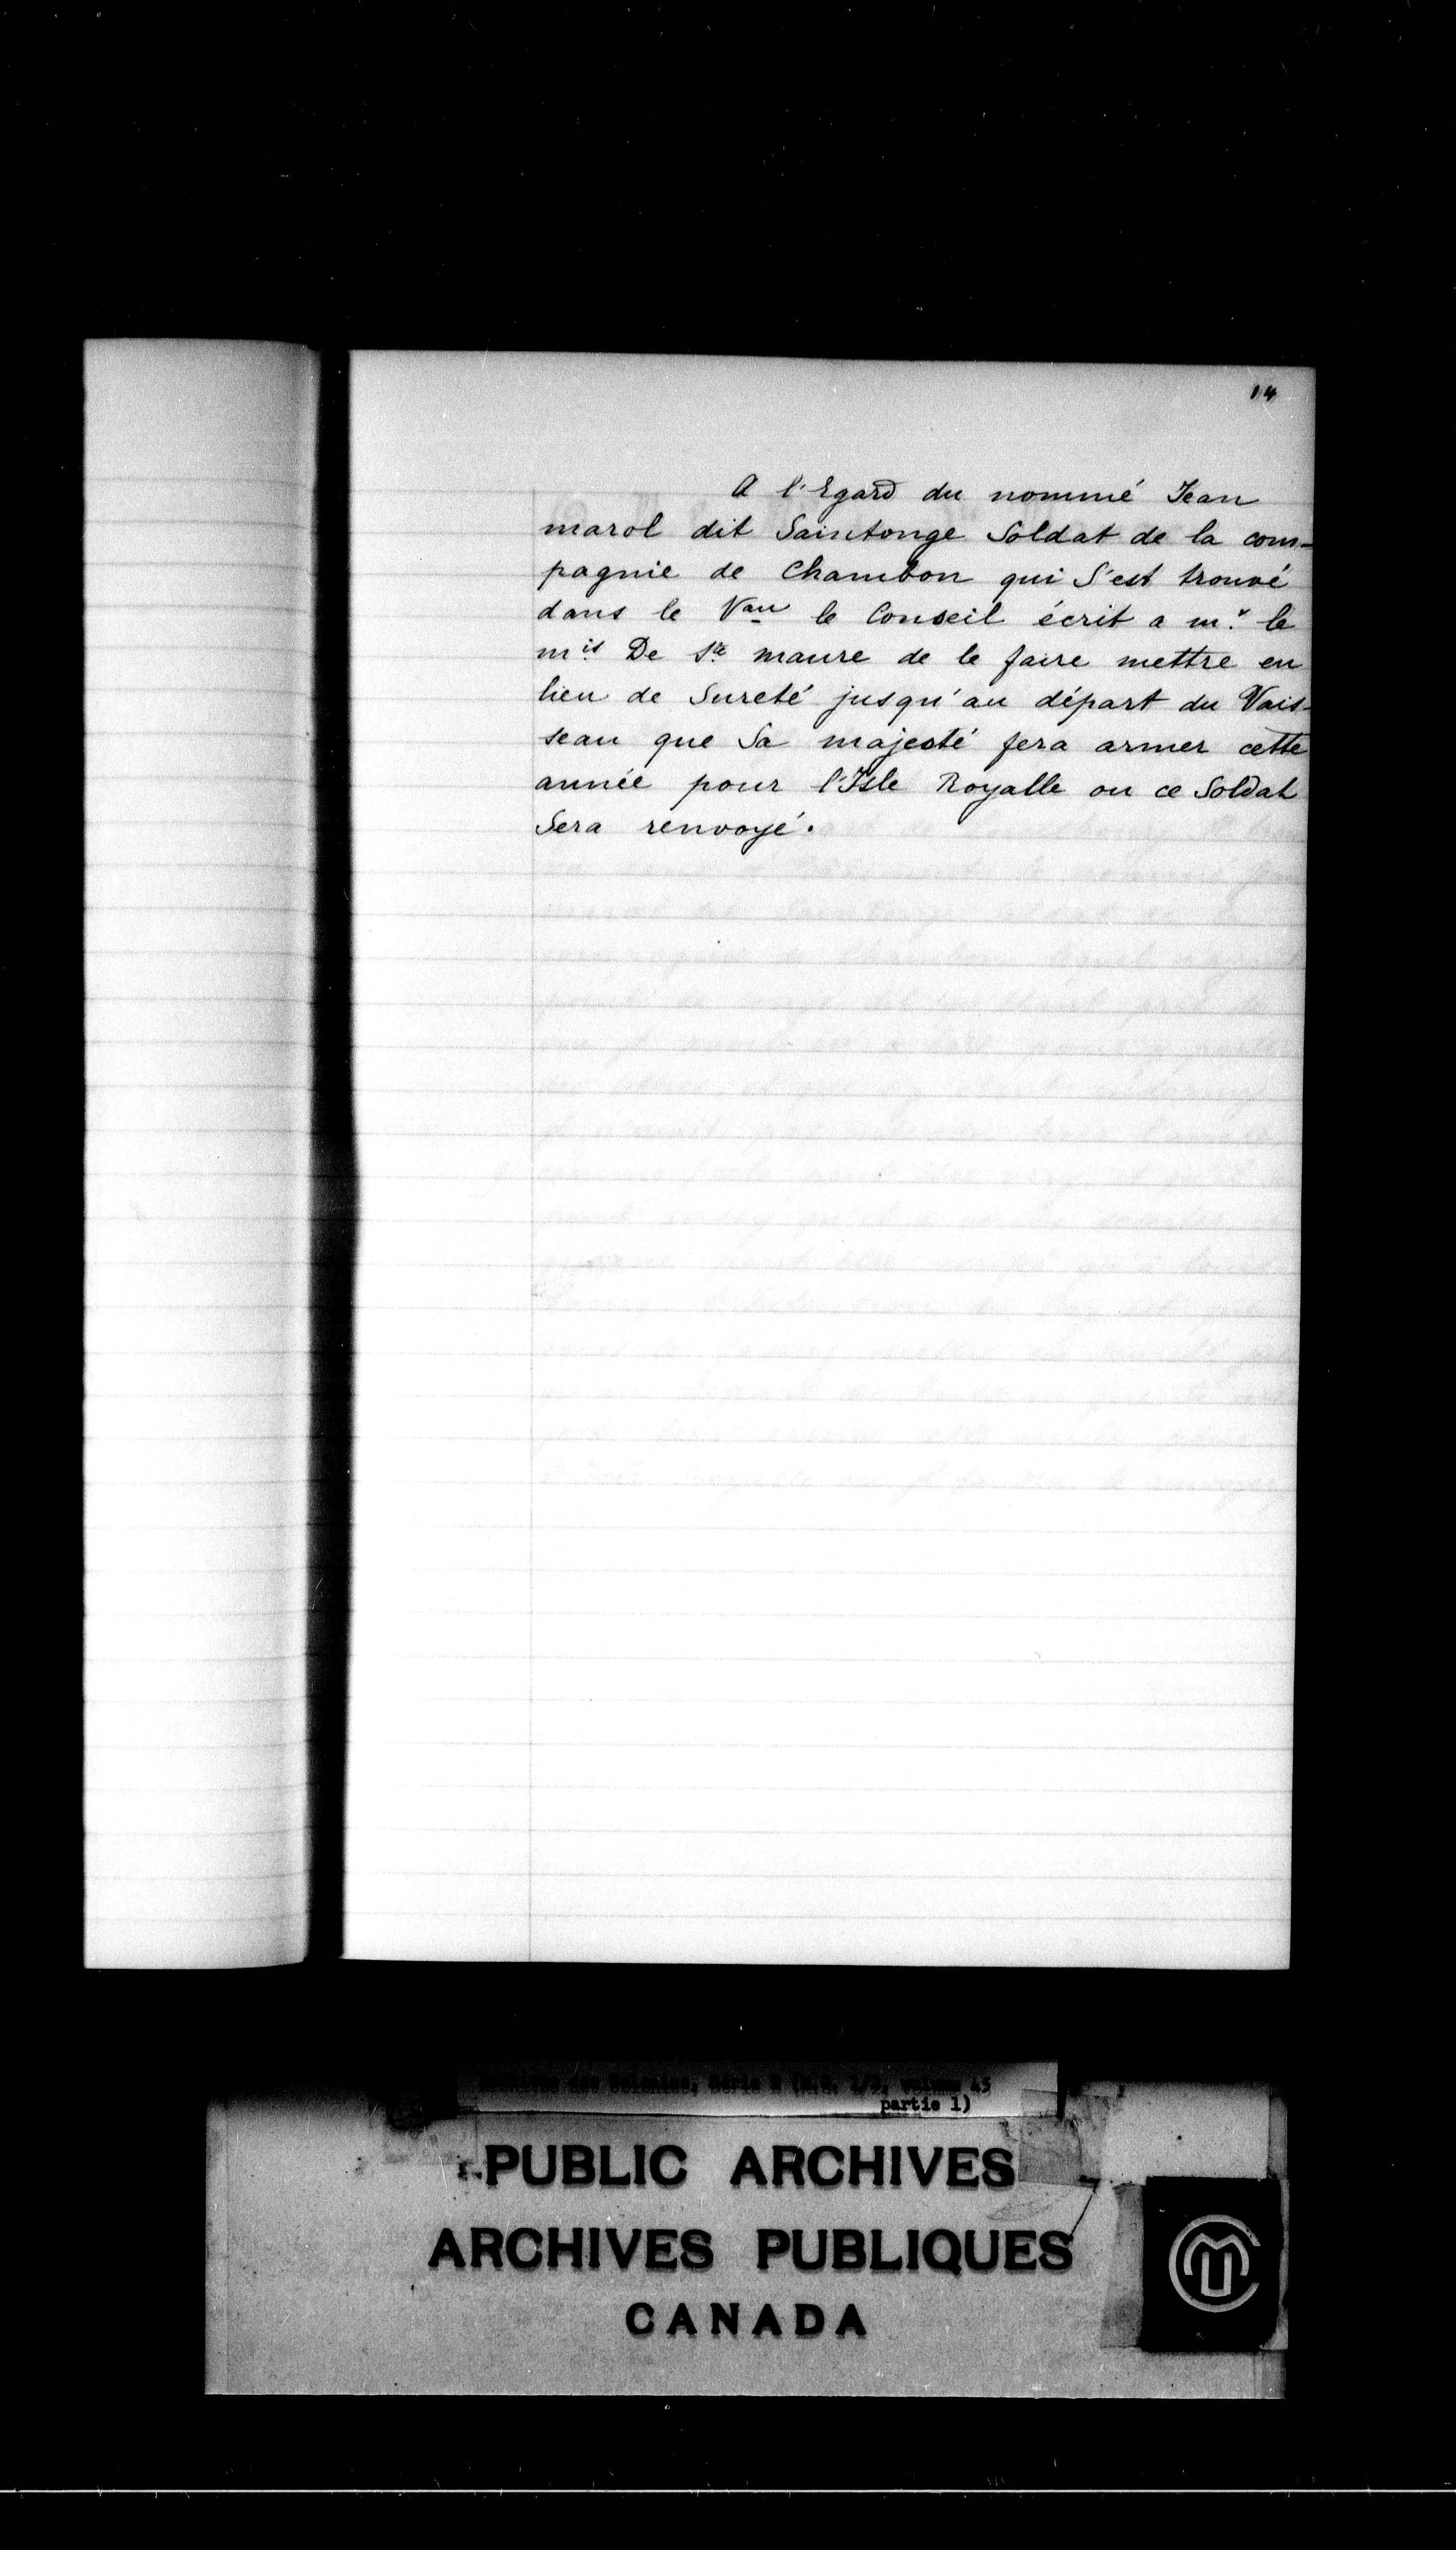 14
A l'Egard du nommé Jean
marol dit Saintonge Soldat de la com-
pagnie de Chambon qui S'est trouvé
dans le Vau le Conseil écrit a mr. le
mis De Ste maure de le faire mettre en
lieu de Sureté jusqu'au départ du Vais-
seau que Sa majesté fera armer cette
année pour l'Isle Royalle ou ce Soldat
Sera renvoyé.
45
partie 1)
PUBLIC ARCHIVES
ARCHIVES PUBLIQUES
CANADA